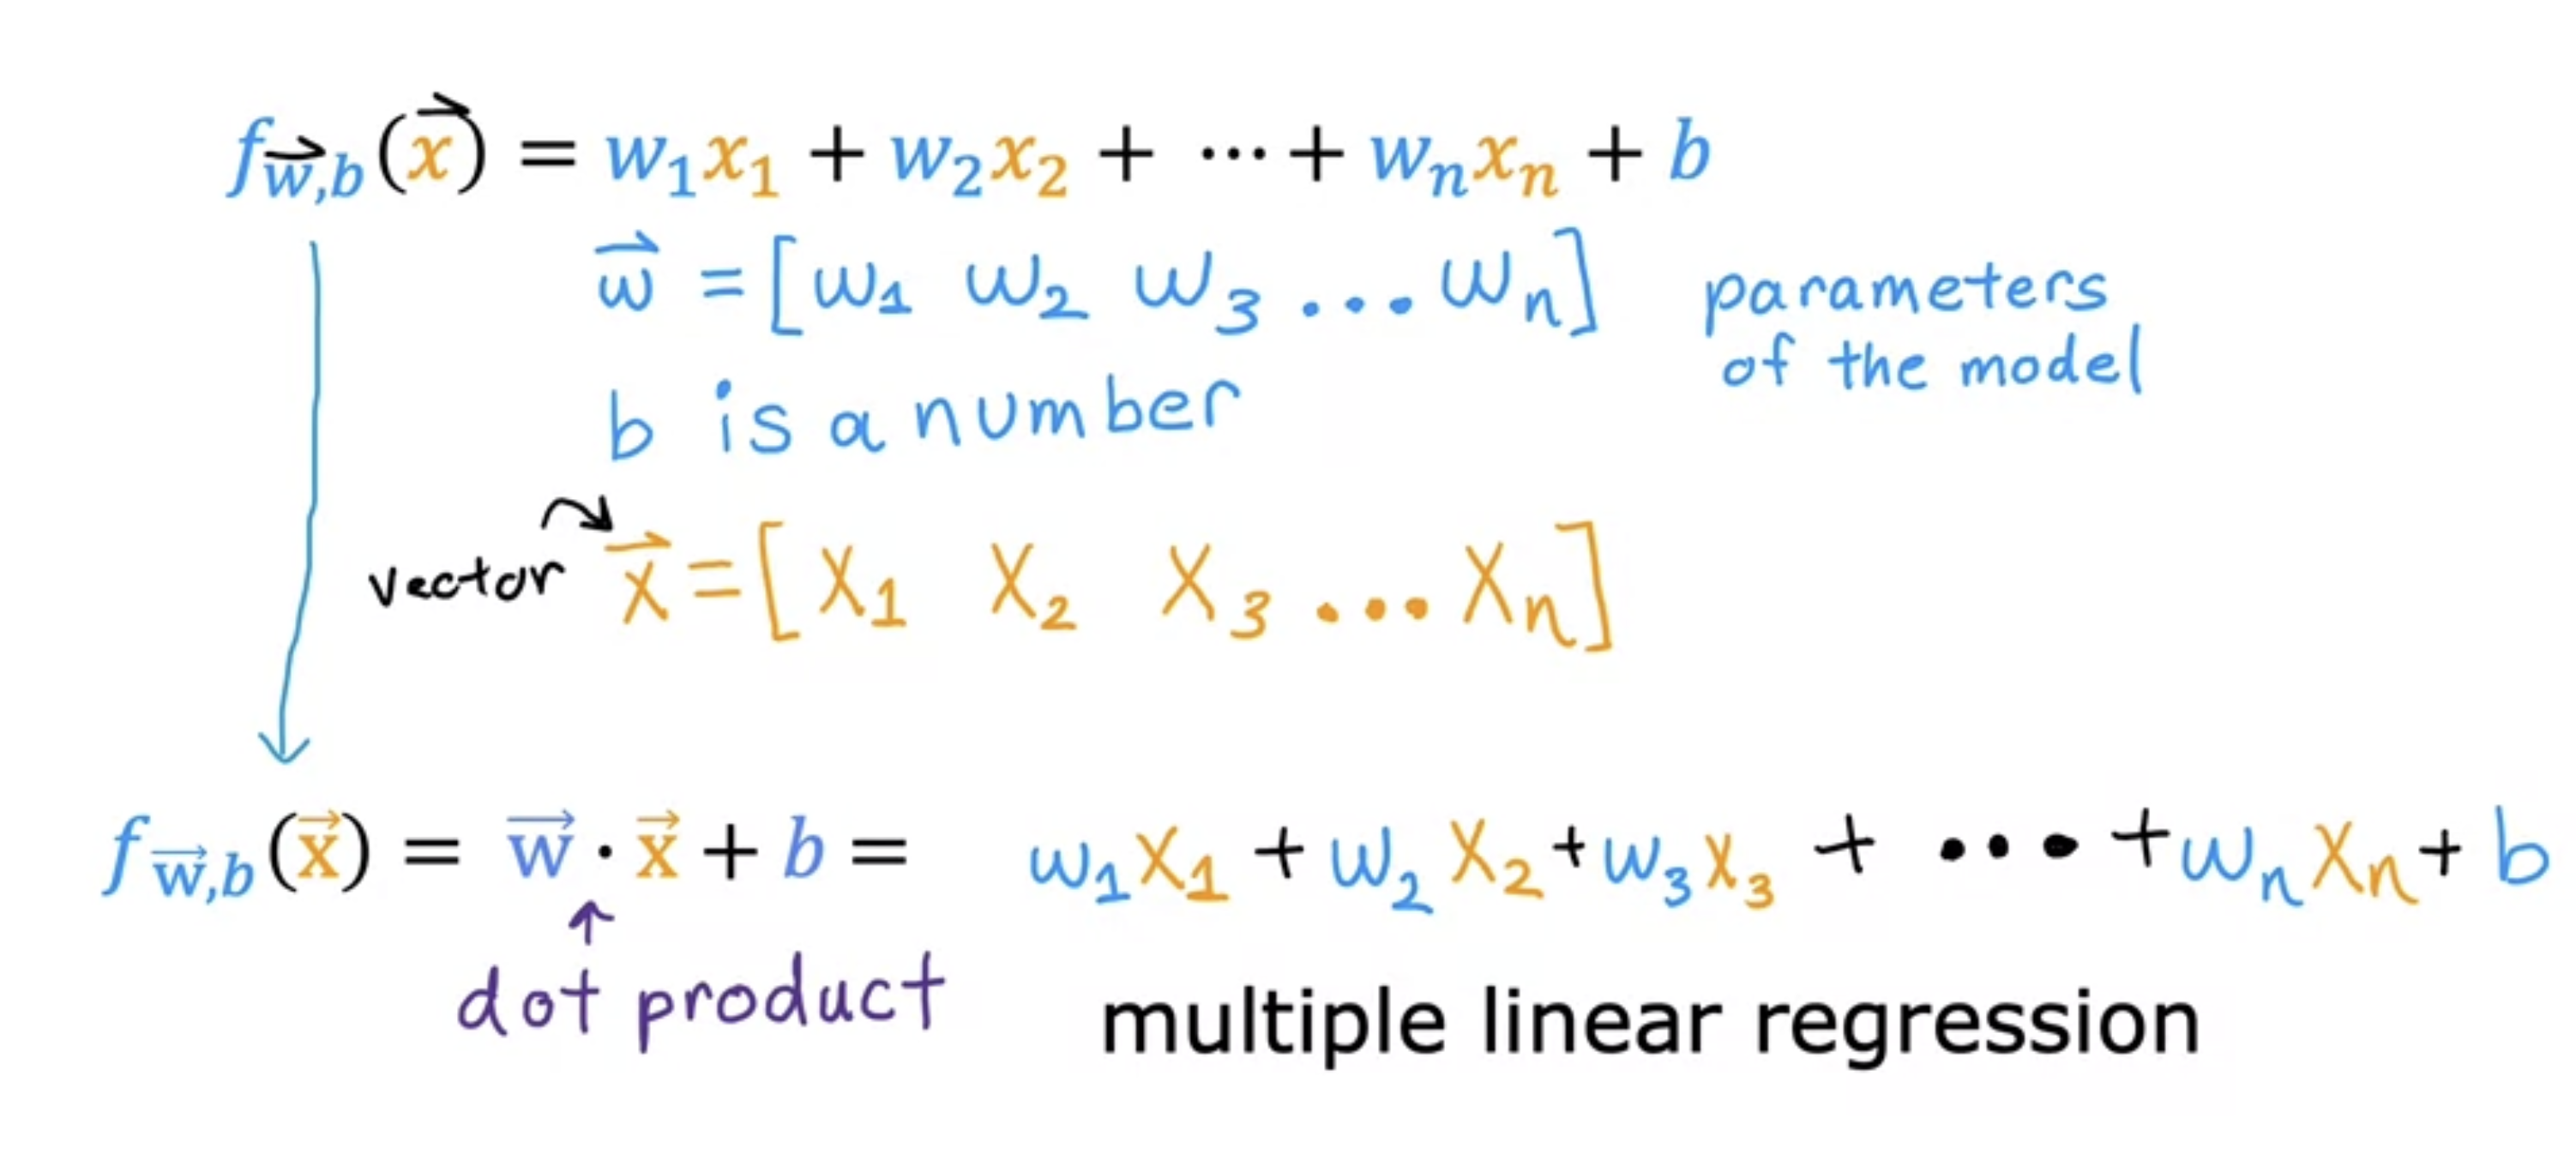 f w⃗,b (x⃗) = w₁x₁ + w₂x₂ + ⋯ + wₙxₙ + b
w⃗ = [w₁ w₂ w₃ ... wₙ] parameters
of the model
b is a number
vector x⃗ = [x₁ x₂ x₃ ... xₙ]
f w⃗,b (x⃗) = w⃗ · x⃗ + b = w₁x₁ + w₂x₂ + w₃x₃ + ... + wₙxₙ + b
dot product
multiple linear regression